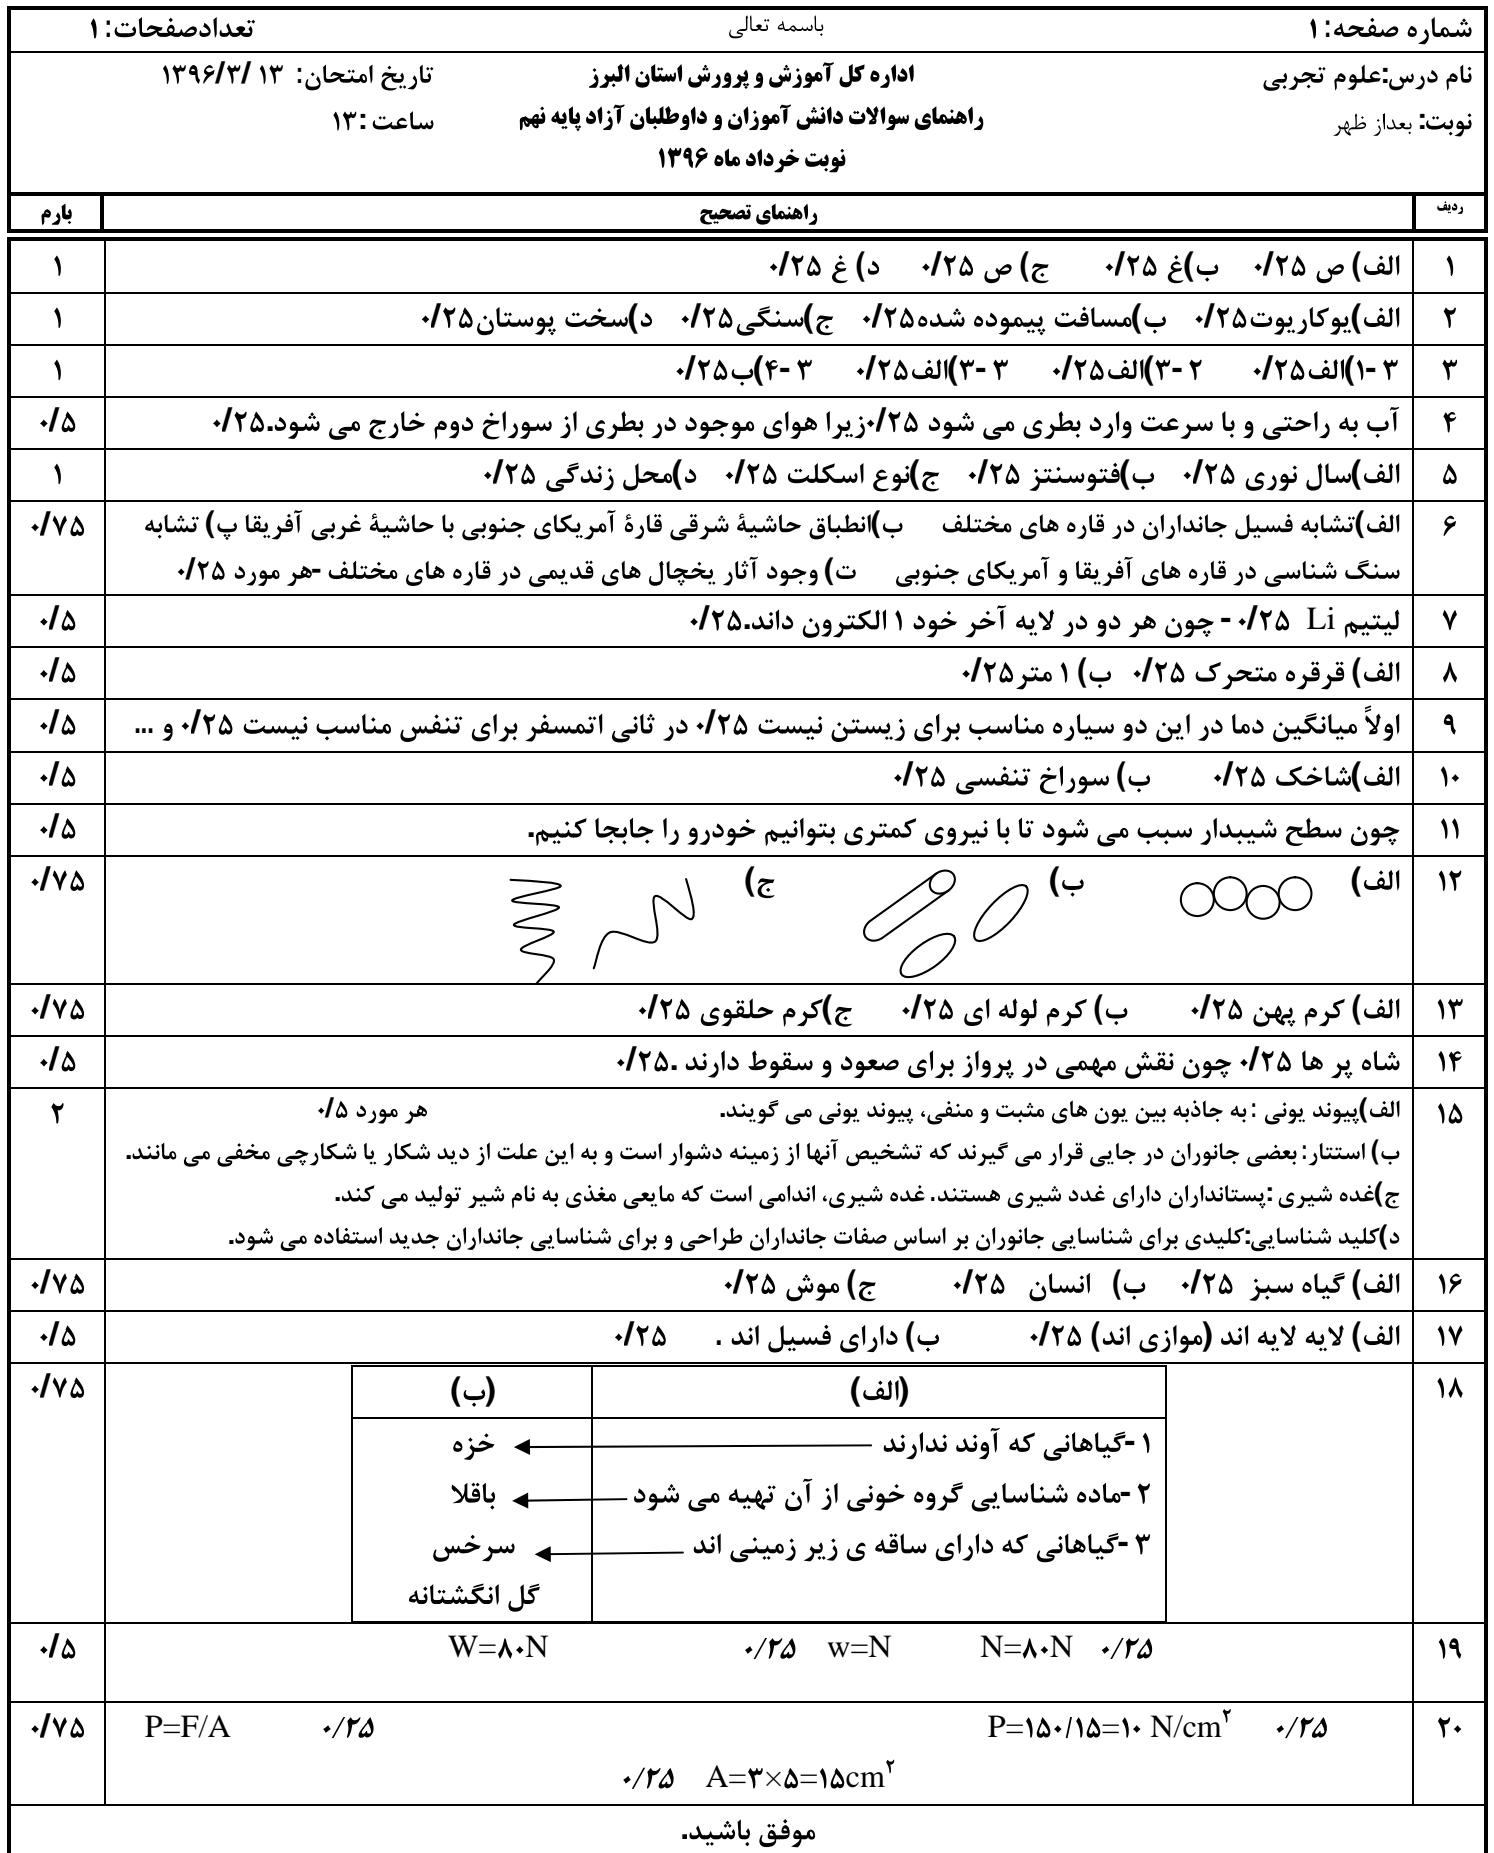 شماره صفحه:۱ باسمه تعالی تعدادصفحات:۱
نام درس:علوم تجربی اداره کل آموزش و پرورش استان البرز تاریخ امتحان: ۱۳ /۱۳۹۶/۳
نوبت: بعداز ظهر راهنمای سوالات دانش آموزان و داوطلبان آزاد پایه نهم ساعت :۱۳
نوبت خرداد ماه ۱۳۹۶
ردیف راهنمای تصحیح بارم
۱ الف) ص ۰/۲۵ ب)غ ۰/۲۵ ج) ص ۰/۲۵ د) غ ۰/۲۵ ۱
۲ الف)یوکاریوت۰/۲۵ ب)مسافت پیموده شده۰/۲۵ ج)سنگی۰/۲۵ د)سخت پوستان۰/۲۵ ۱
۳ ۳ -۱)الف۰/۲۵ ۲ -۳)الف۰/۲۵ ۳ -۳)الف۰/۲۵ ۳ -۴)ب۰/۲۵ ۱
۴ آب به راحتی و با سرعت وارد بطری می شود ۰/۲۵زیرا هوای موجود در بطری از سوراخ دوم خارج می شود.۰/۲۵ ۰/۵
۵ الف)سال نوری ۰/۲۵ ب)فتوسنتز ۰/۲۵ ج)نوع اسکلت ۰/۲۵ د)محل زندگی ۰/۲۵ ۱
۶ الف)تشابه فسیل جانداران در قاره های مختلف ب)انطباق حاشیۀ شرقی قارۀ آمریکای جنوبی با حاشیۀ غربی آفریقا پ) تشابه ۰/۷۵
سنگ شناسی در قاره های آفریقا و آمریکای جنوبی ت) وجود آثار یخچال های قدیمی در قاره های مختلف -هر مورد ۰/۲۵
۷ لیتیم Li ۰/۲۵ - چون هر دو در لایه آخر خود ۱ الکترون داند.۰/۲۵ ۰/۵
۸ الف) قرقره متحرک ۰/۲۵ ب) ۱ متر۰/۲۵ ۰/۵
۹ اولاً میانگین دما در این دو سیاره مناسب برای زیستن نیست ۰/۲۵ در ثانی اتمسفر برای تنفس مناسب نیست ۰/۲۵ و ... ۰/۵
۱۰ الف)شاخک ۰/۲۵ ب) سوراخ تنفسی ۰/۲۵ ۰/۵
۱۱ چون سطح شیبدار سبب می شود تا با نیروی کمتری بتوانیم خودرو را جابجا کنیم. ۰/۵
۱۲ الف) ب) ج) ۰/۷۵
۱۳ الف) کرم پهن ۰/۲۵ ب) کرم لوله ای ۰/۲۵ ج)کرم حلقوی ۰/۲۵ ۰/۷۵
۱۴ شاه پر ها ۰/۲۵ چون نقش مهمی در پرواز برای صعود و سقوط دارند .۰/۲۵ ۰/۵
۱۵ الف)پیوند یونی : به جاذبه بین یون های مثبت و منفی، پیوند یونی می گویند. هر مورد ۰/۵ ۲
ب) استتار: بعضی جانوران در جایی قرار می گیرند که تشخیص آنها از زمینه دشوار است و به این علت از دید شکار یا شکارچی مخفی می مانند.
ج)غده شیری :پستانداران دارای غدد شیری هستند. غده شیری، اندامی است که مایعی مغذی به نام شیر تولید می کند.
د)کلید شناسایی:کلیدی برای شناسایی جانوران بر اساس صفات جانداران طراحی و برای شناسایی جانداران جدید استفاده می شود.
۱۶ الف) گیاه سبز ۰/۲۵ ب) انسان ۰/۲۵ ج) موش ۰/۲۵ ۰/۷۵
۱۷ الف) لایه لایه اند (موازی اند) ۰/۲۵ ب) دارای فسیل اند . ۰/۲۵ ۰/۵
۱۸ (الف) (ب) ۰/۷۵
۱ -گیاهانی که آوند ندارند خزه
۲ -ماده شناسایی گروه خونی از آن تهیه می شود باقلا
۳ -گیاهانی که دارای ساقه ی زیر زمینی اند سرخس
گل انگشتانه
۱۹ W=۸۰N ۰/۲۵ w=N N=۸۰N ۰/۲۵ ۰/۵
۲۰ P=F/A ۰/۲۵ P=۱۵۰/۱۵=۱۰ N/cm۲ ۰/۲۵ ۰/۷۵
۰/۲۵ A=۳×۵=۱۵cm۲
موفق باشید.